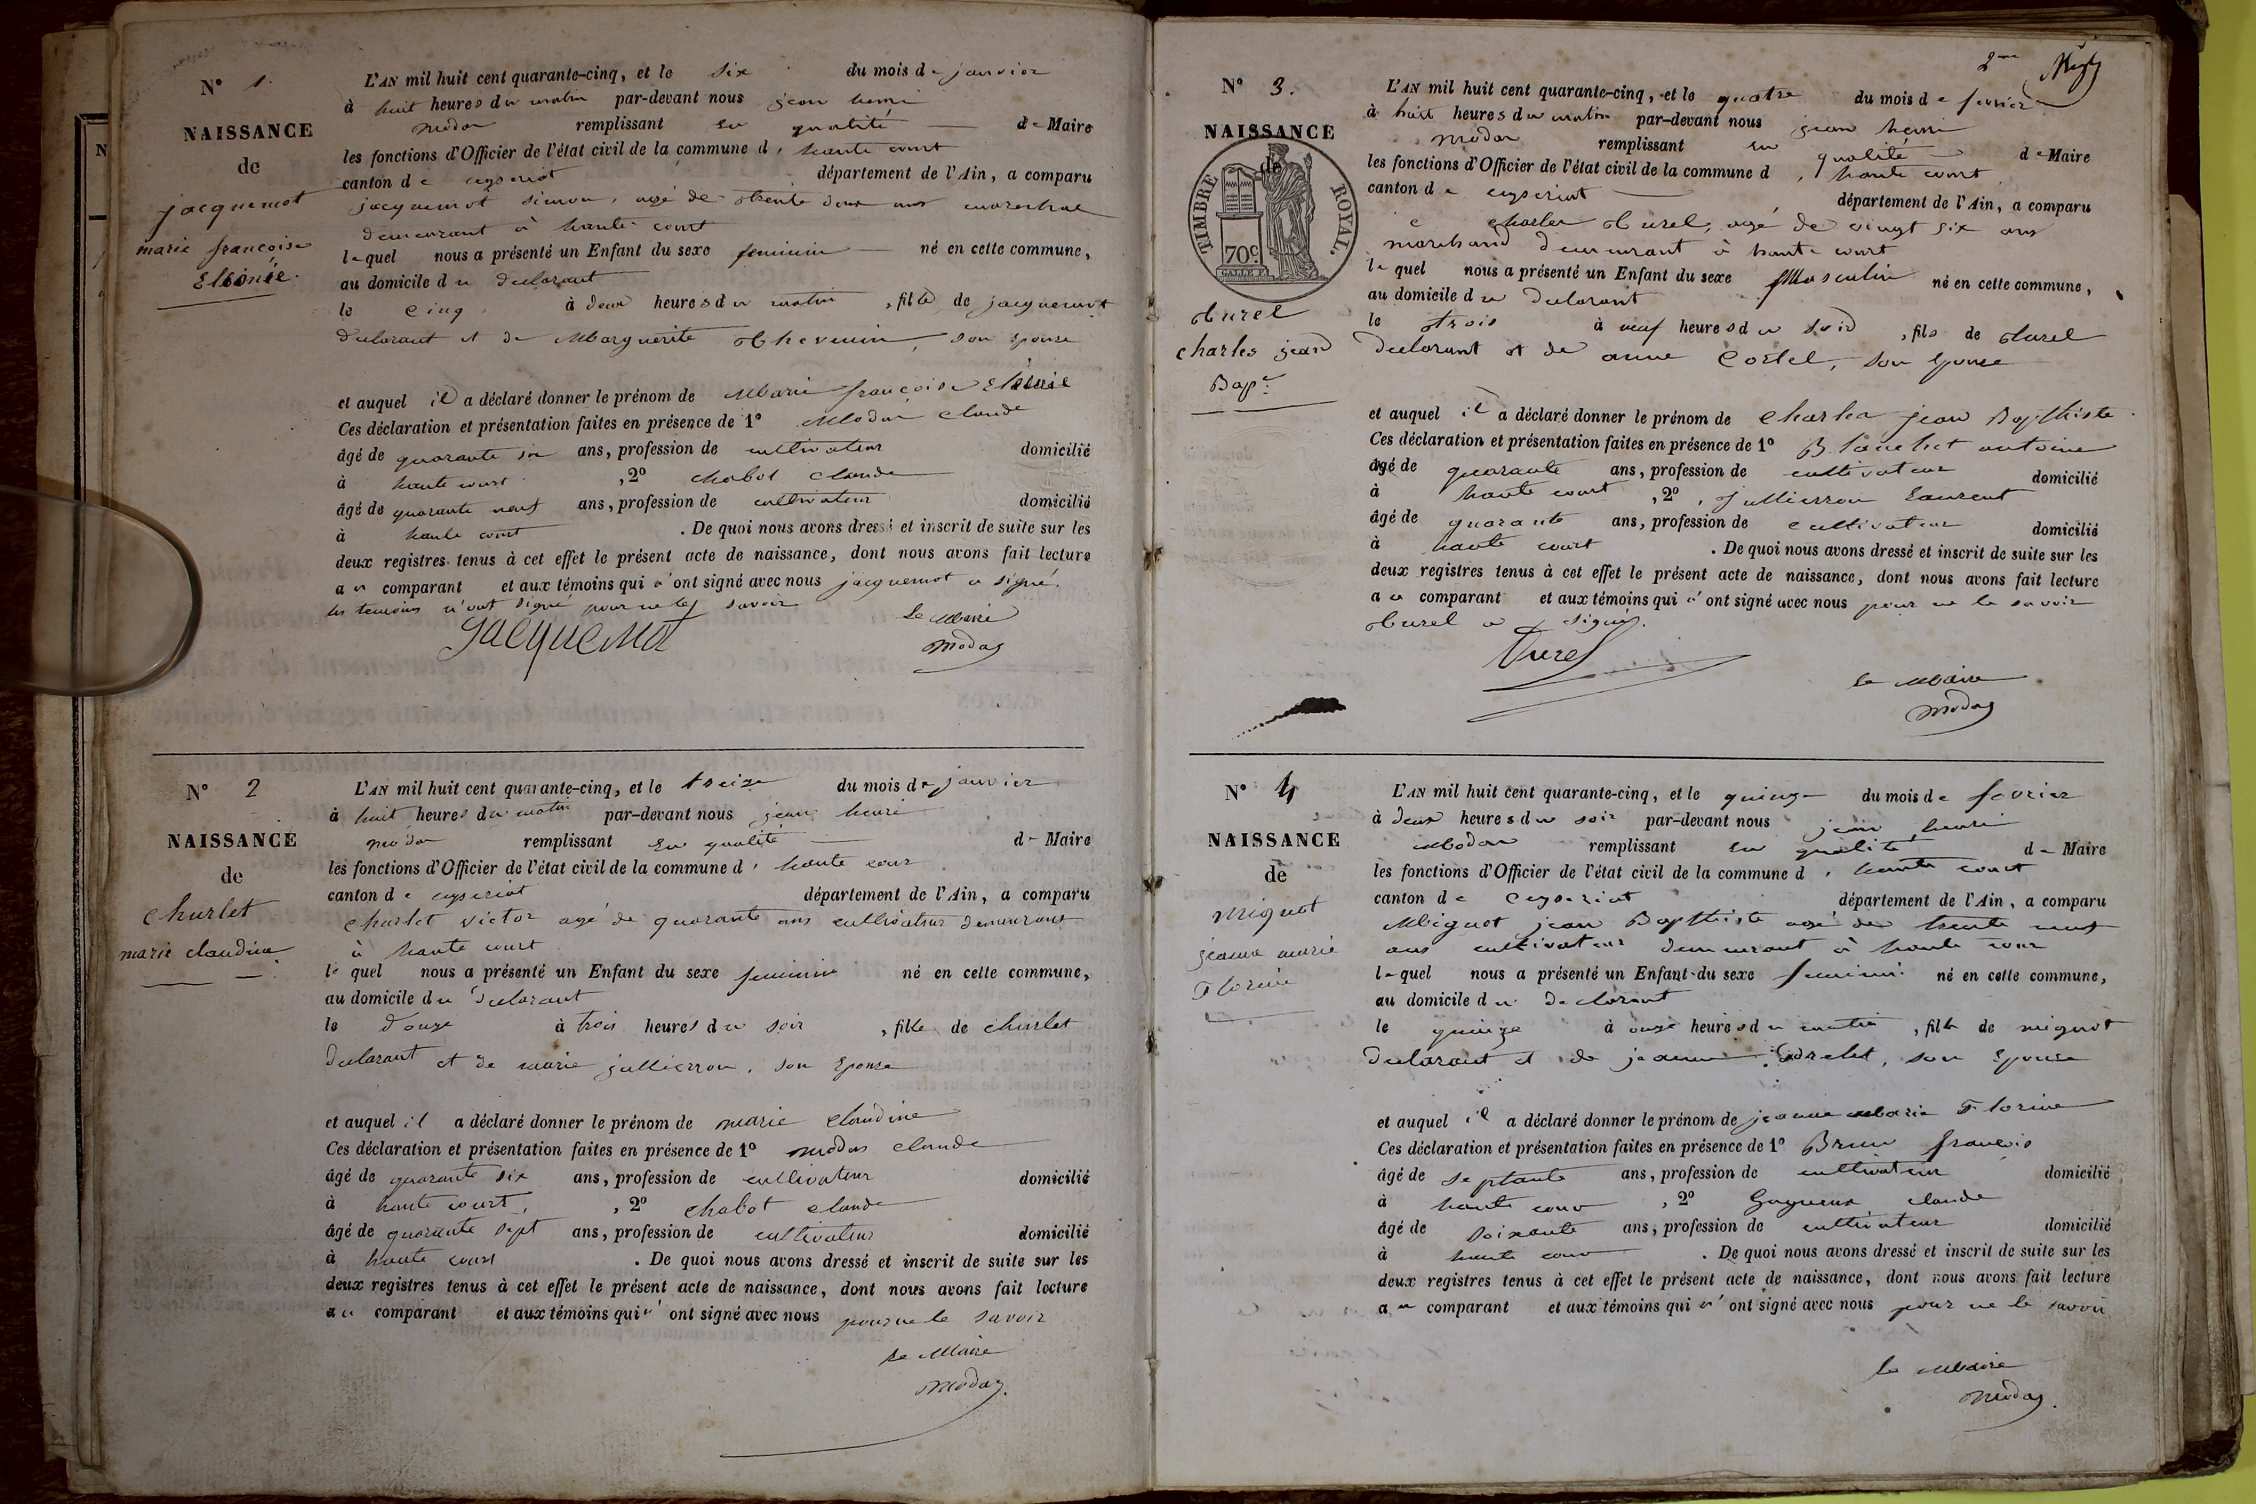 N° 1.
NAISSANCE
de
jacquemot
marie françoise
L'AN mil huit cent quarante-cinq, et le six du mois de janvier
à huit heures du matin par-devant nous jean henri
modas remplissant en qualité de Maire
les fonctions d'Officier de l'état civil de la commune d' haute court
canton de ceyseriat département de l'Ain, a comparu
jacquemot simon, agé de trente deux ans marechal
demeurant à haute court
lequel nous a présenté un Enfant du sexe feminin né en cette commune,
au domicile du declarant
le cinq à deux heures du matin, fille de jacquemot
declarant et de Marguerite Thevenin, son epouse
et auquel il a déclaré donner le prénom de Marie françoise
Ces déclaration et présentation faites en présence de 1° Modas claude
âgé de quarante six ans, profession de cultivateur domicilié
à haute court, 2° chabot claude
âgé de quarante neuf ans, profession de cultivateur domicilié
à haute court. De quoi nous avons dressé et inscrit de suite sur les
deux registres tenus à cet effet le présent acte de naissance, dont nous avons fait lecture
au comparant et aux témoins qui n'ont signé avec nous jacquemot a signé.
les temoins n'ont signé pour ne le savoir
Le Maire
Jacquemot
Modas
N° 2
NAISSANCE
de
Churlet
marie claudine
L'AN mil huit cent quarante-cinq, et le treize du mois de janvier
à huit heures du matin par-devant nous jean henri
modas remplissant en qualité de Maire
les fonctions d'Officier de l'état civil de la commune d' haute cour
canton de ceyseriat département de l'Ain, a comparu
churlet victor agé de quarante ans cultivateur demeurant
à haute court
lequel nous a présenté un Enfant du sexe feminin né en cette commune,
au domicile du declarant
le douze à trois heures du soir, fille de churlet
declarant et de marie jullierron, son epouse
et auquel il a déclaré donner le prénom de marie claudine
Ces déclaration et présentation faites en présence de 1° modas claude
âgé de quarante six ans, profession de cultivateur domicilié
à haute court, 2° chabot claude
âgé de quarante sept ans, profession de cultivateur domicilié
à haute court. De quoi nous avons dressé et inscrit de suite sur les
deux registres tenus à cet effet le présent acte de naissance, dont nous avons fait lecture
au comparant et aux témoins qui n'ont signé avec nous pour ne le savoir
le Maire
Modas
2me
N° 3.
NAISSANCE
de
TIMBRE ROYAL.
70c
Turel
charles jean
Bapte
L'AN mil huit cent quarante-cinq, et le quatre du mois de fevrier
à huit heures du matin par-devant nous jean henri
Modas remplissant en qualité de Maire
les fonctions d'Officier de l'état civil de la commune d' haute court
canton de ceyseriat département de l'Ain, a comparu
charles Turel, agé de vingt six ans
marchand demeurant à haute court
lequel nous a présenté un Enfant du sexe Masculin né en cette commune,
au domicile du declarant
le trois à neuf heures du soir, fils de Turel
declarant et de anne Costel, son epouse
et auquel il a déclaré donner le prénom de charles jean Baptiste
Ces déclaration et présentation faites en présence de 1° Blanchet antoine
âgé de quarante ans, profession de cultivateur domicilié
à haute court, 2° jullierron Laurent
âgé de quarante ans, profession de cultivateur domicilié
à haute court. De quoi nous avons dressé et inscrit de suite sur les
deux registres tenus à cet effet le présent acte de naissance, dont nous avons fait lecture
au comparant et aux témoins qui n'ont signé avec nous pour ne le savoir
Turel a signé.
Turel
le Maire
Modas
N° 4
NAISSANCE
de
Mignot
jeanne marie
Florine
L'AN mil huit cent quarante-cinq, et le quinze du mois de fevrier
à deux heures du soir par-devant nous jean henri
Modas remplissant en qualité de Maire
les fonctions d'Officier de l'état civil de la commune d' haute court
canton de Ceyseriat département de l'Ain, a comparu
Mignot jean Baptiste agé de trente neuf
ans cultivateur demeurant à haute cour
lequel nous a présenté un Enfant du sexe feminin né en cette commune,
au domicile du declarant
le quinze à onze heures du matin, fille de mignot
declarant et de jeanne son epouse
et auquel il a déclaré donner le prénom de jeanne Marie Florine
Ces déclaration et présentation faites en présence de 1° Brun françois
âgé de septante ans, profession de cultivateur domicilié
à haute cour, 2° claude
âgé de soixante ans, profession de cultivateur domicilié
à haute cour. De quoi nous avons dressé et inscrit de suite sur les
deux registres tenus à cet effet le présent acte de naissance, dont nous avons fait lecture
au comparant et aux témoins qui n'ont signé avec nous pour ne le savoir
le Maire
Modas